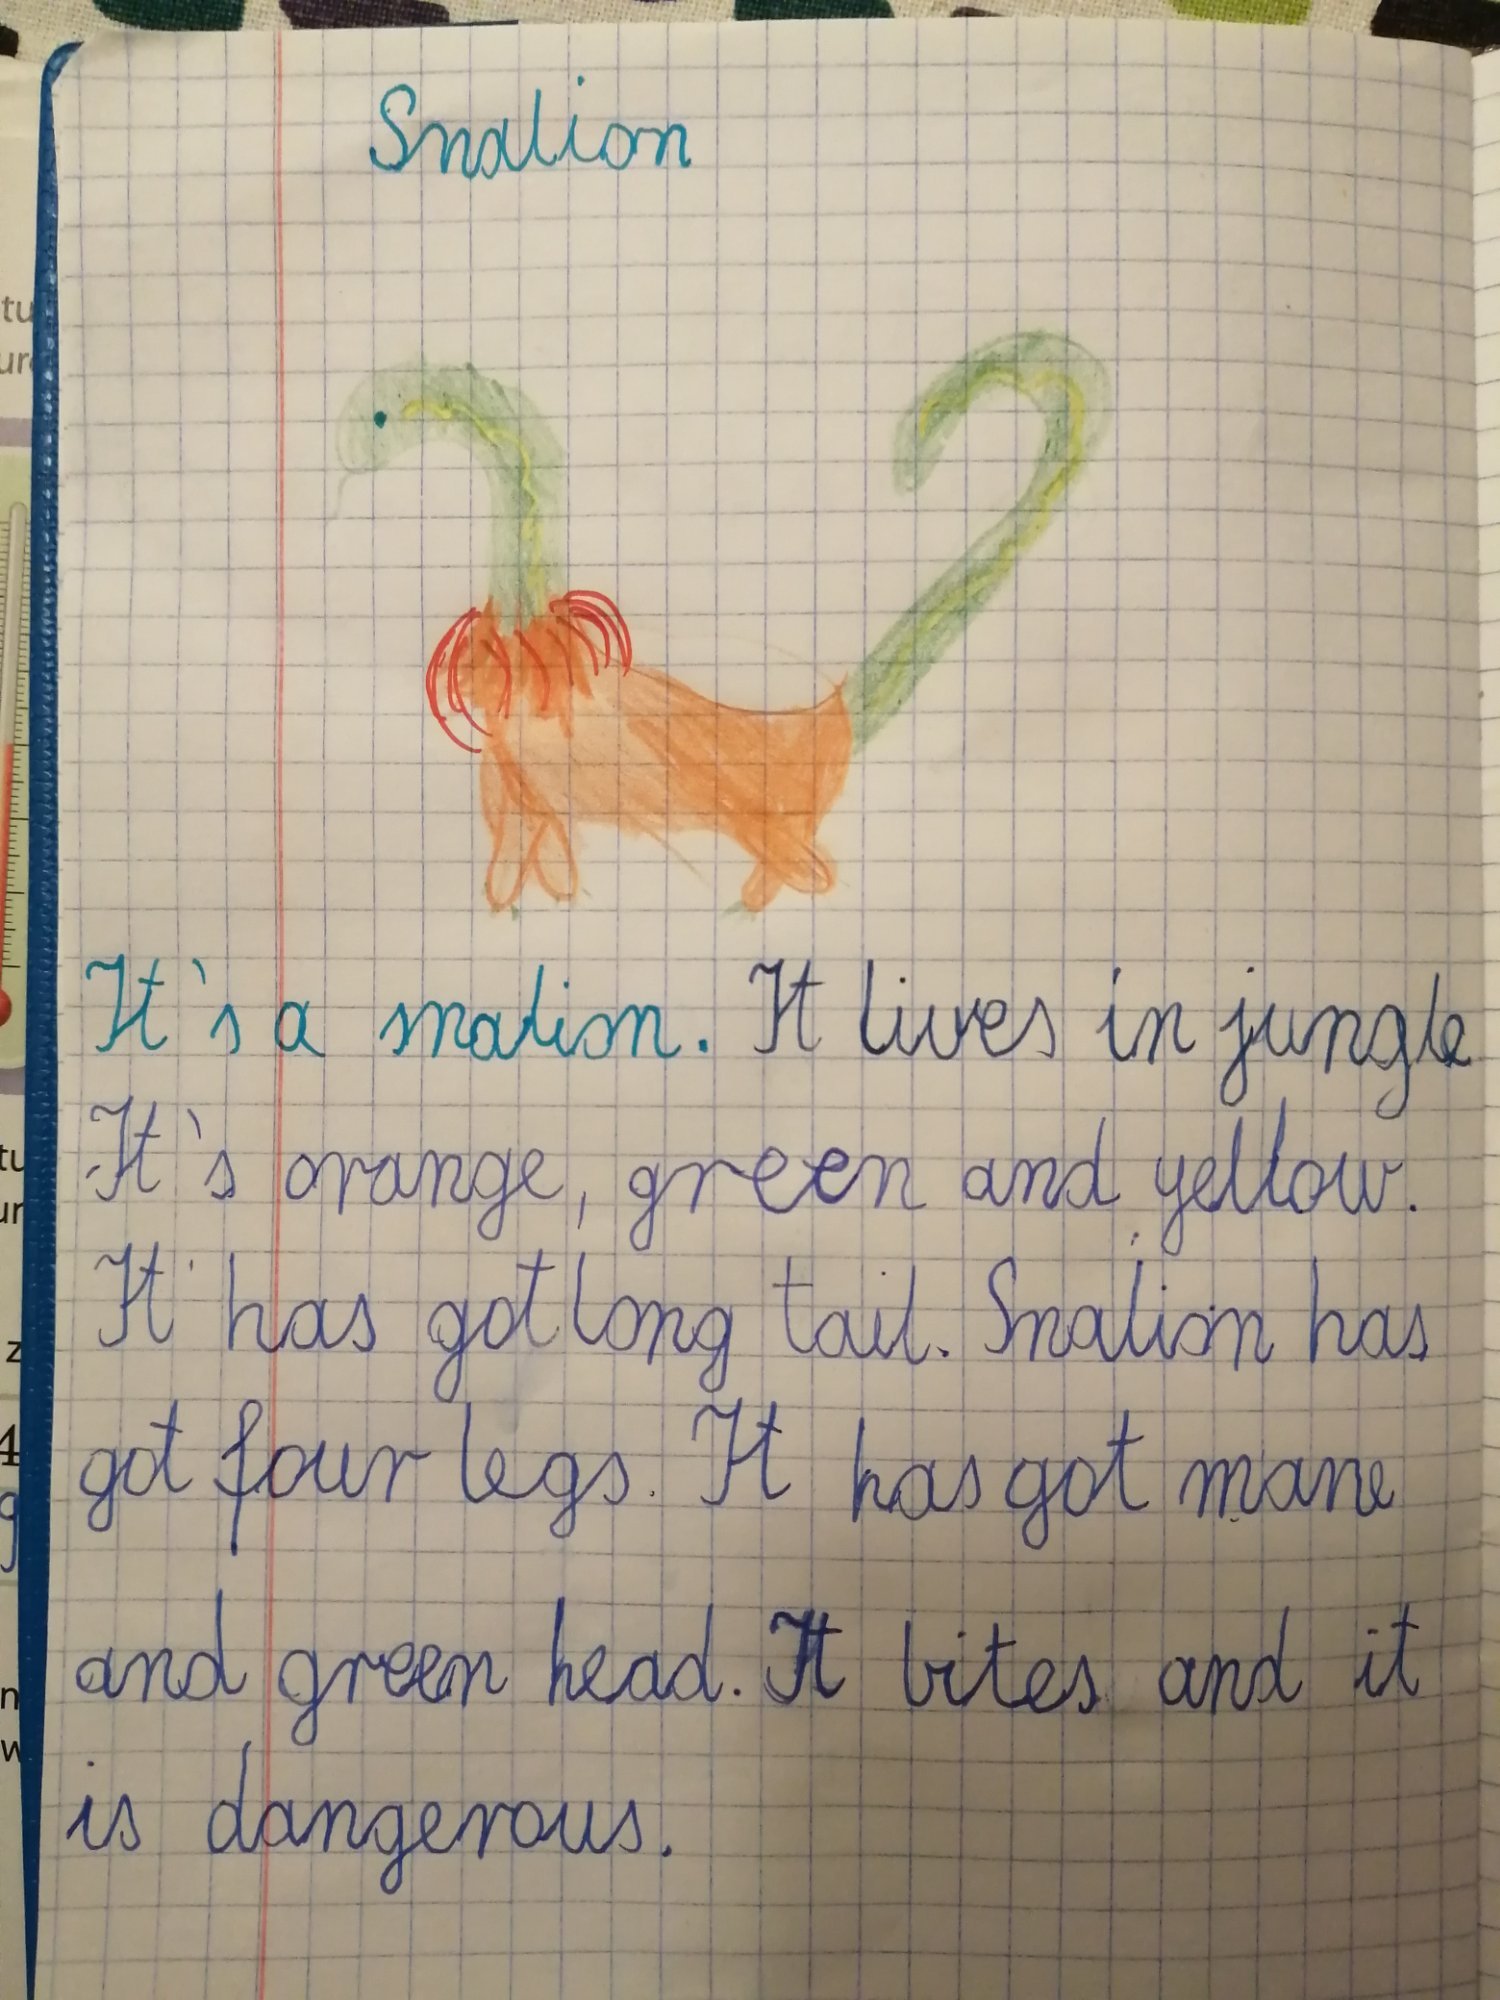 Snalion
It's a snalion. It lives in jungle
It's orange, green and yellow.
It has got long tail. Snalion has
got four legs. It has got mane
and green head. It bites and it
is dangerous.